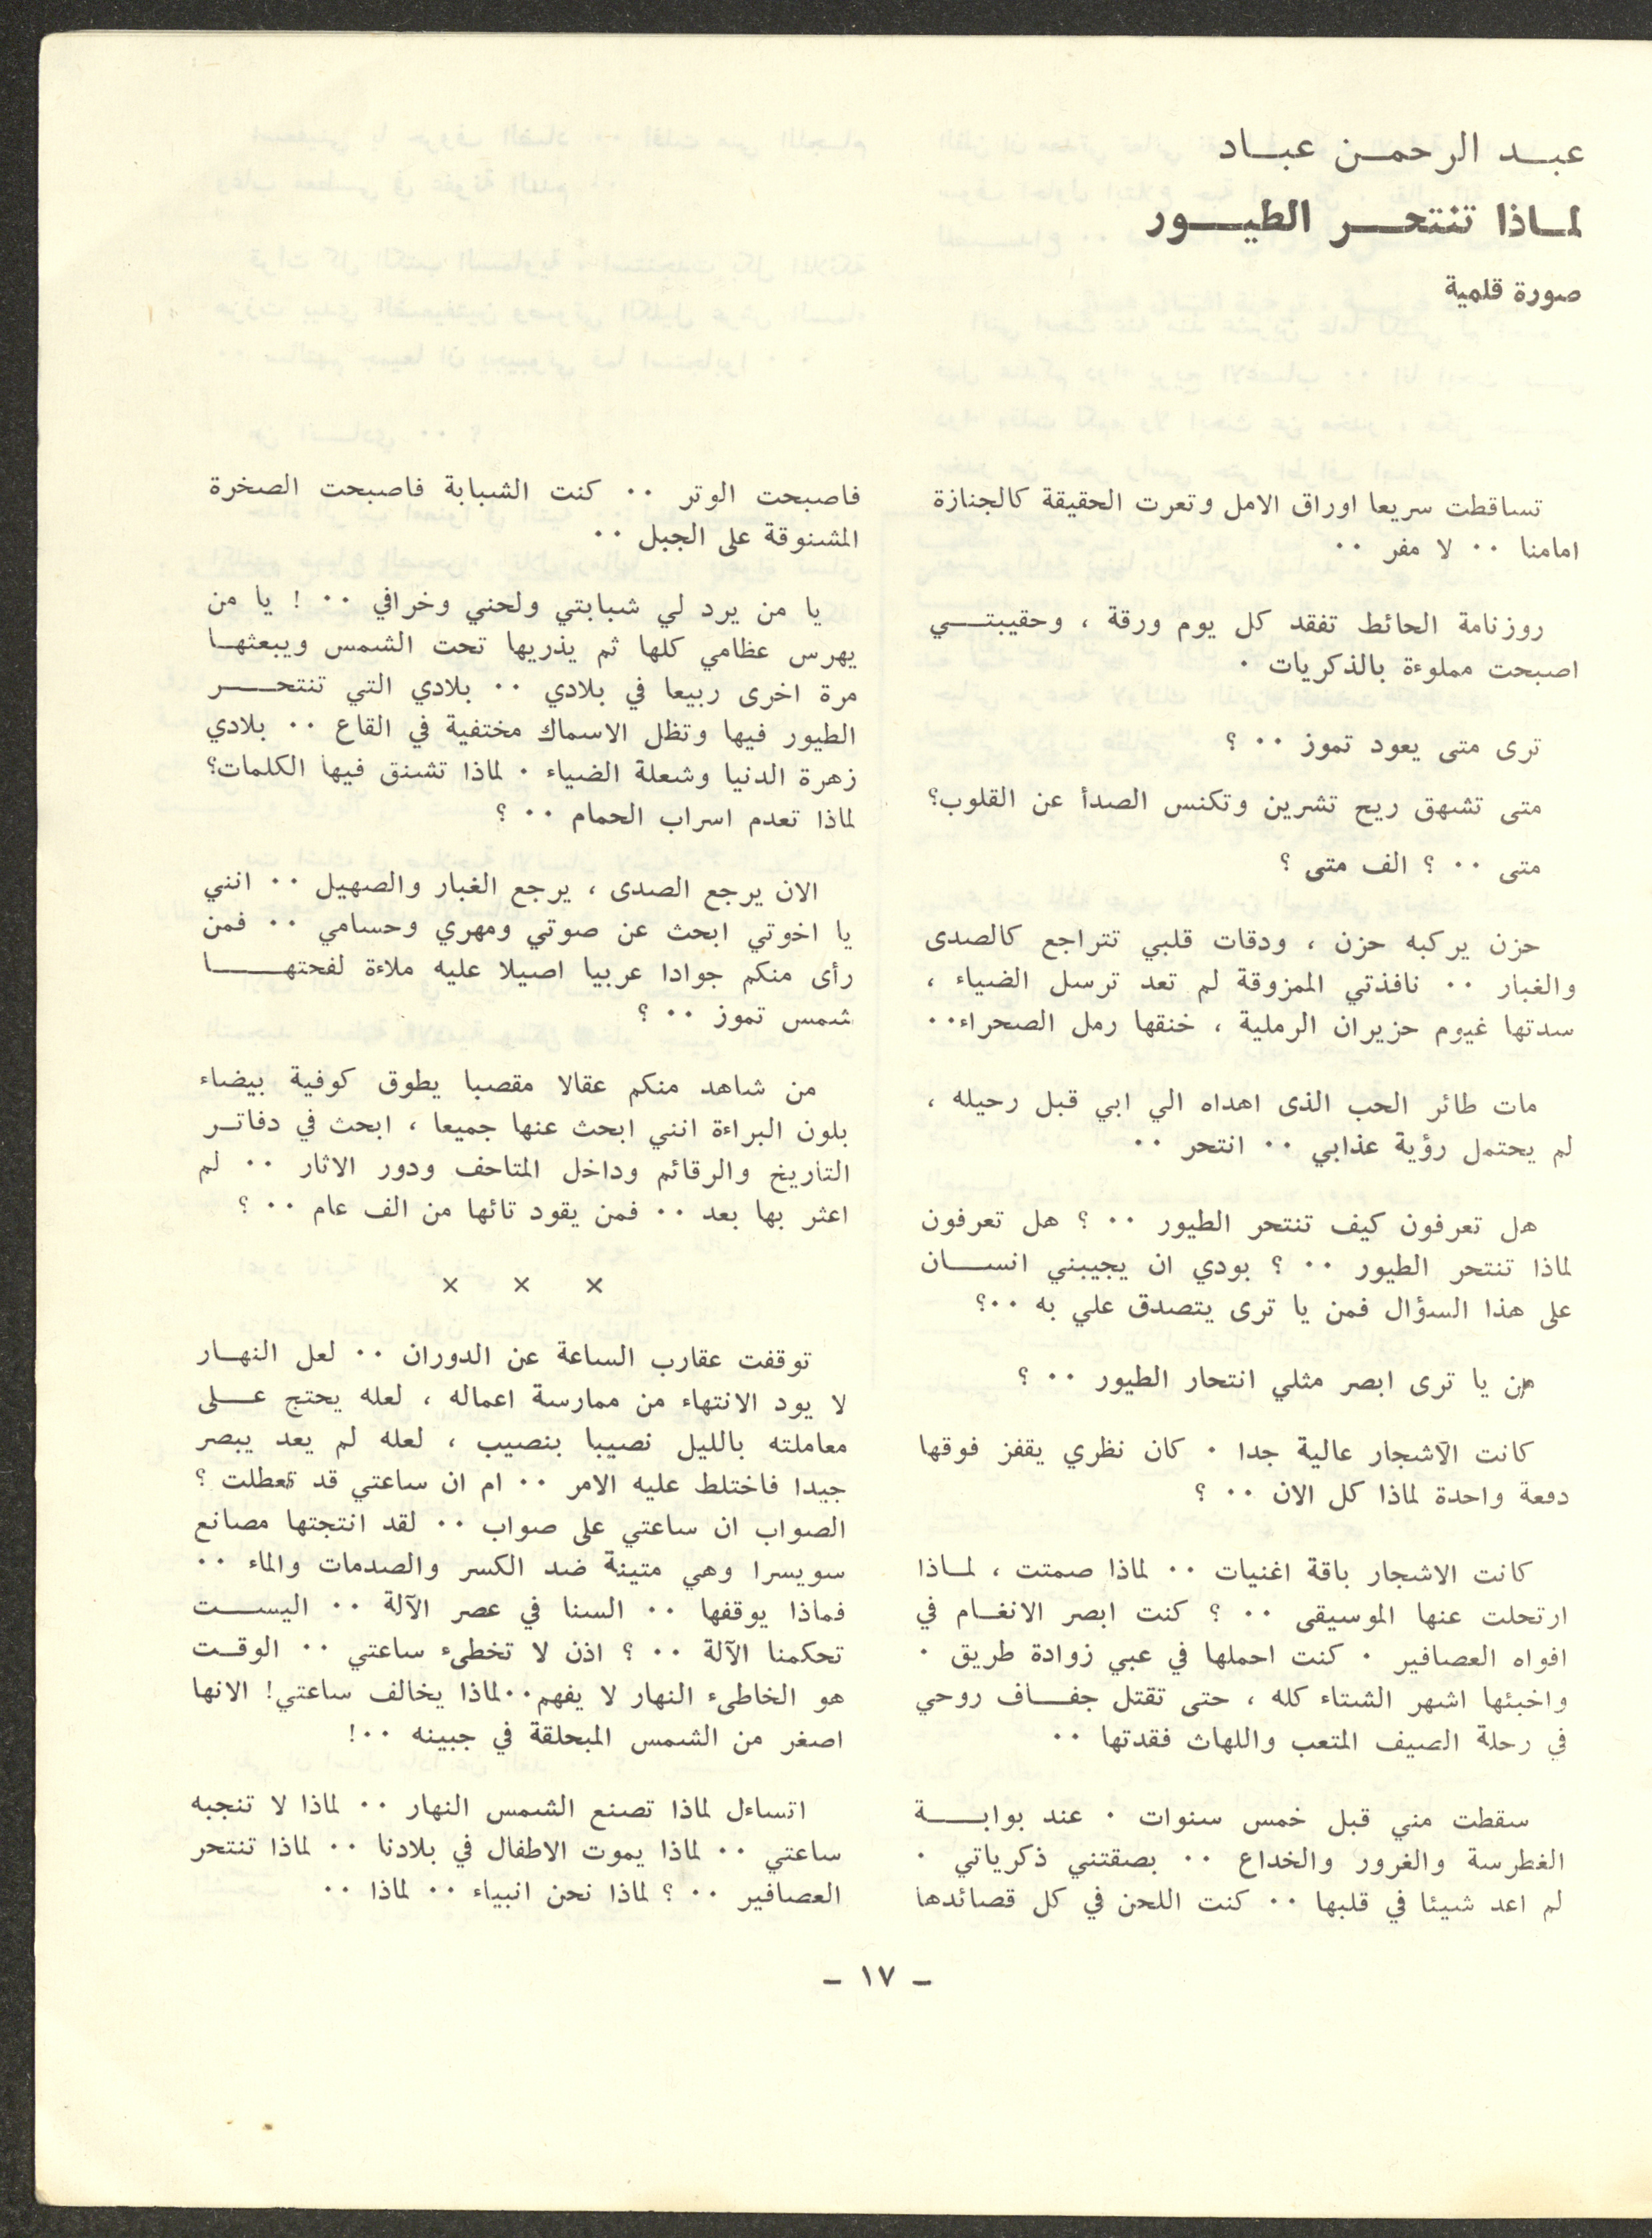 عبد الرحمن عباد
لماذا تنتحر الطيور
صورة قلمية
تساقطت سريعا اوراق الامل وتعرت الحقيقة كالجنازة
امامنا ٠٠ لا مفر ٠٠
روزنامة الحائط تفقد كل يوم ورقة ، وحقيبتي
اصبحت مملوءة بالذكريات ٠
ترى متى يعود تموز ٠٠ ؟
متى تشهق ريح تشرين وتكنس الصدأ عن القلوب؟
متى ٠٠ ؟ الف متى ؟
حزن يركبه حزن ، ودقات قلبي تتراجع كالصدى
والغبار ٠٠ نافذتي الممزوقة لم تعد ترسل الضياء ،
سدتها غيوم حزيران الرملية ، خنقها رمل الصحراء٠٠
مات طائر الحب الذى اهداه الي ابي قبل رحيله ،
لم يحتمل رؤية عذابي ٠٠ انتحر ٠٠
هل تعرفون كيف تنتحر الطيور ٠٠ ؟ هل تعرفون
لماذا تنتحر الطيور ٠٠ ؟ بودي ان يجيبني انسان
على هذا السؤال فمن يا ترى يتصدق علي به ٠٠؟
من يا ترى ابصر مثلي انتحار الطيور ٠٠ ؟
كانت الأشجار عالية جدا ٠ كان نظري يقفز فوقها
دفعة واحدة لماذا كل الان ٠٠ ؟
كانت الاشجار باقة اغنيات ٠٠ لماذا صمتت ، لماذا
ارتحلت عنها الموسيقى ٠٠ ؟ كنت ابصر الانغام في
افواه العصافير ٠ كنت احملها في عبي زوادة طريق ٠
واخبئها اشهر الشتاء كله ، حتى تقتل جفاف روحي
في رحلة الصيف المتعب واللهاث فقدتها ٠٠
سقطت مني قبل خمس سنوات ٠ عند بوابة
الغطرسة والغرور والخداع ٠٠ بصقتني ذكرياتي ٠
لم اعد شيئا في قلبها ٠٠ كنت اللحن في كل قصائدها
فاصبحت الوتر ٠٠ كنت الشبابة فاصبحت الصخرة
المشنوقة على الجبل ٠٠
يا من يرد لي شبابتي ولحني وخرافي ٠٠ ! يا من
يهرس عظامي كلها ثم يذريها تحت الشمس ويبعثها
مرة اخرى ربيعا في بلادي ٠٠ بلادي التي تنتحر
الطيور فيها وتظل الاسماك مختفية في القاع ٠٠ بلادي
زهرة الدنيا وشعلة الضياء ٠ لماذا تشنق فيها الكلمات؟
لماذا تعدم اسراب الحمام ٠٠ ؟
الان يرجع الصدى ، يرجع الغبار والصهيل ٠٠ انني
يا اخوتي ابحث عن صوتي ومهري وحسامي ٠٠ فمن
رأى منكم جوادا عربيا اصيلا عليه ملاءة لفحتها
شمس تموز ٠٠ ؟
من شاهد منكم عقالا مقصبا يطوق كوفية بيضاء
بلون البراءة انني ابحث عنها جميعا ، ابحث في دفاتر
التاريخ والرقائم وداخل المتاحف ودور الاثار ٠٠ لم
اعثر بها بعد ٠٠ فمن يقود تائها من الف عام ٠٠ ؟
× × ×
توقفت عقارب الساعة عن الدوران ٠٠ لعل النهار
لا يود الانتهاء من ممارسة اعماله ، لعله يحتج على
معاملته بالليل نصيبا بنصيب ، لعله لم يعد يبصر
جيدا فاختلط عليه الامر ٠٠ ام ان ساعتي قد تعطلت ؟
الصواب ان ساعتي على صواب ٠٠ لقد انتجتها مصانع
سويسرا وهي متينة ضد الكسر والصدمات والماء ٠٠
فماذا يوقفها ٠٠ السنا في عصر الآلة ٠٠ اليست
تحكمنا الآلة ٠٠ ؟ اذن لا تخطىء ساعتي ٠٠ الوقت
هو الخاطىء النهار لا يفهم٠٠لماذا يخالف ساعتي! الانها
اصغر من الشمس المبحلقة في جبينه ٠٠!
اتساءل لماذا تصنع الشمس النهار ٠٠ لماذا لا تنجبه
ساعتي ٠٠ لماذا يموت الاطفال في بلادنا ٠٠ لماذا تنتحر
العصافير ٠٠ ؟ لماذا نحن انبياء ٠٠ لماذا ٠٠
– ١٧ –